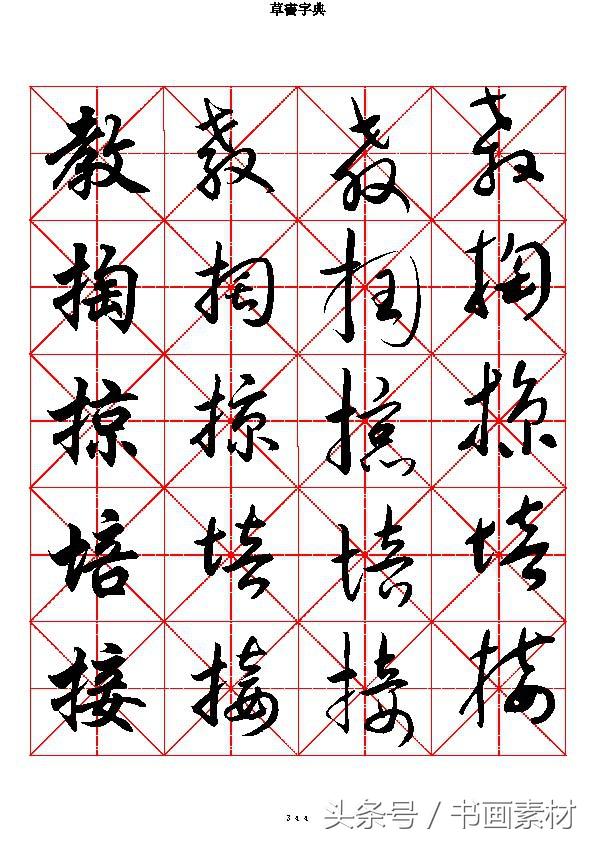 草書字典
教 教 教 教
掏 掏 掏 掏
掠 掠 掠 掠
培 培 培 培
接 接 接 接
344
头条号 / 书画素材